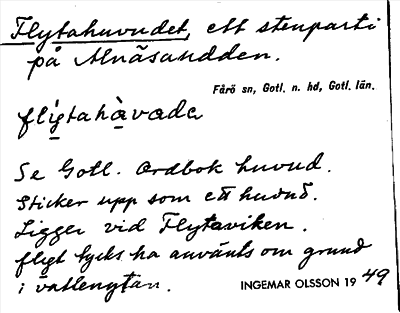 Flytahuvudet, ett stenparti
på Alnäsaudden.
Fårö sn, Gotl. n. hd, Gotl. län.
flitahàvade
Se Gotl. Ordbok huvud.
Sticker upp som ett huvud.
Ligger vid Flytaviken.
flyt tycks ha använts om grund
i vattenytan.
INGEMAR OLSSON 1949